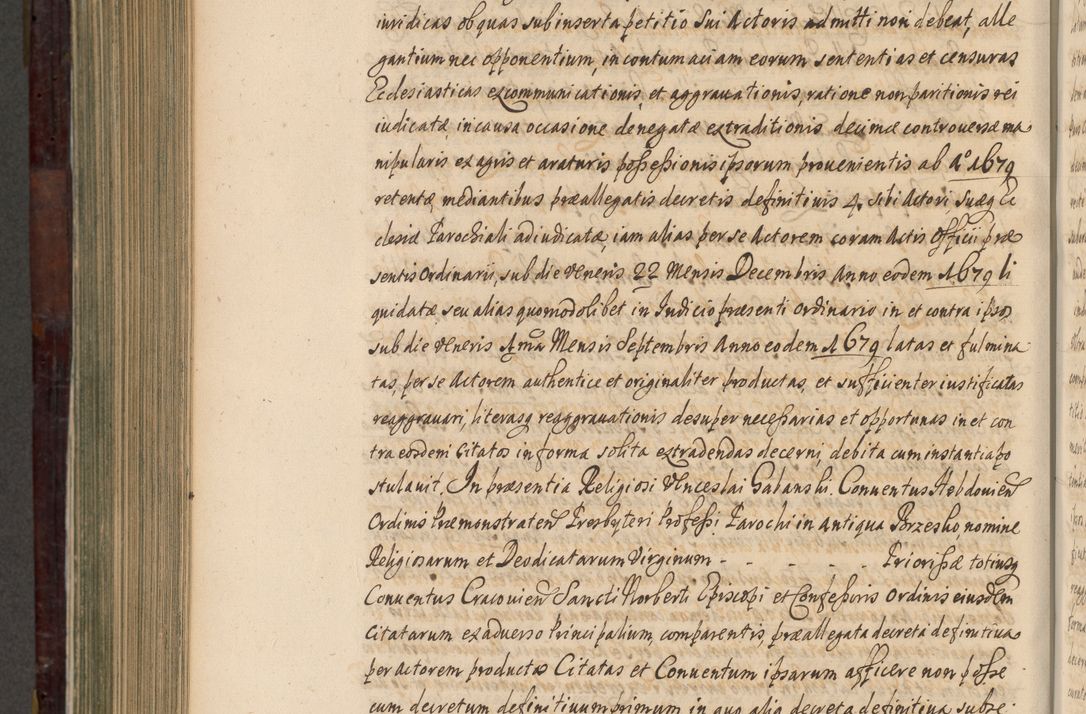 iuridicas ob quas subinserta petitio sui Actoris admitti non debeat, alle
gantium nec opponentium, in contumaciam eorum sententias et censuras
Ecclesiasticas excommunicationis, et aggrauationis, ratione non paritionis rei
iudicatæ in causa occasione denegatæ extraditionis decimæ controuersæ ma
nipularis ex agris et araturis possessionis ipsorum prouenientis ab Aº 1679
retentæ, mediantibus præallegatis decretis definitiuis 4. sibi Actori, suæq Ec
clesiæ Parochiali adiudicatæ, iam alias per se Actorem coram Actis Officii præ
sentis Ordinarii, sub die Veneris 22 Mensis Decembris Anno eodem 1679 li
quidatæ seu alias quomodolibet in Iudicio præsenti Ordinario in et contra ipsos
sub die Veneris 1ma Mensis Septembris Anno eodem 1679 latas et fulmina
tas, per se Actorem authentice et originaliter productas, et sufficienter iustificatas
reaggrauari, literasq reaggrauationis desuper necessarias et opportunas in et con
tra eosdem Citatos in forma solita extradendas decerni, debita cum instantia po
stulauit. In præsentia Religiosi Venceslai Gabanski. Conuentus Hebdouien
Ordinis Præmonstraten Presbyteri Professi Parochi in antiqua Brzesko, nomine
Religiosarum et Deodicatarum Virginum - - - - - - Priorissæ totiusq
Conuentus Cracouien Sancti Norberti Episcopi et Confessoris Ordinis eiusdem
Citatarum ex aduerso Principalium, comparentis, præallegata decreta definitiua
per Actorem producta Citatas et Conuentum ipsarum afficere non posse
cum decretum definitiuum primum in quo alia decreta definitiua subse